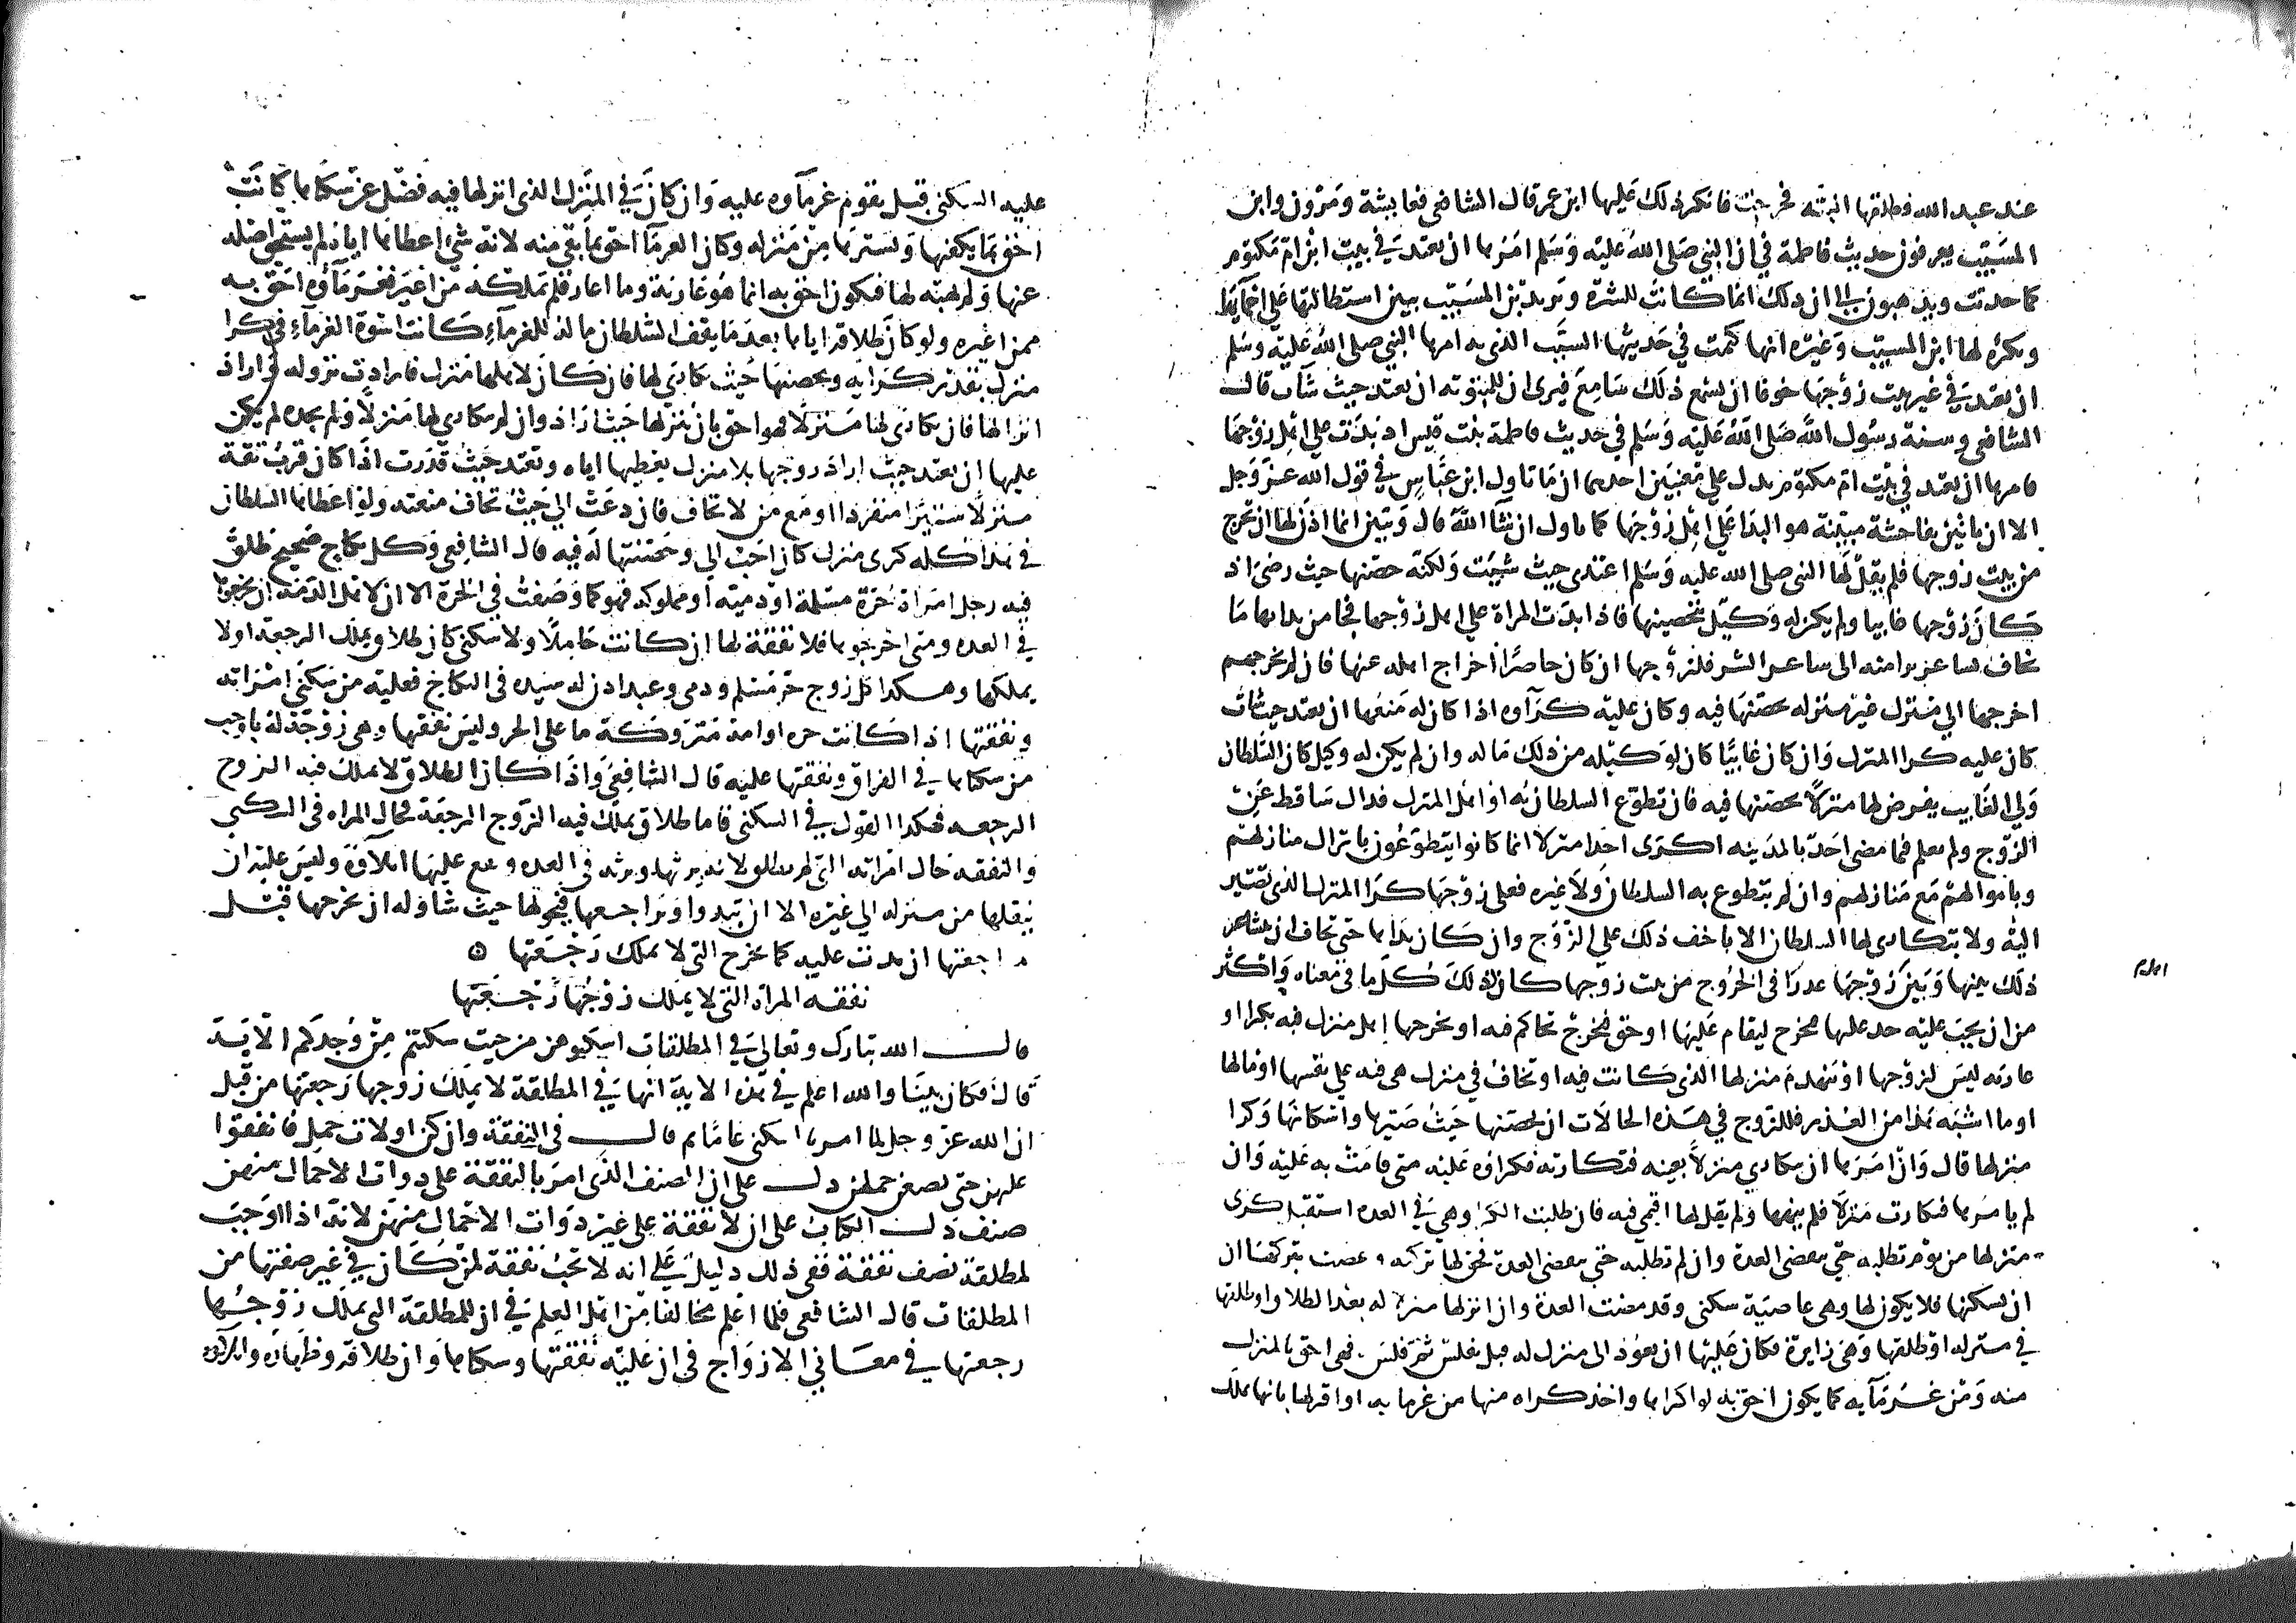 عند عبد الله فطلقها البته فخرجت فانكر ذلك عليها ابن عمر قال الشافعى فعايشة ومروان وابن
المسيب يعرفون حديث فاطمة في ان النبي صلى الله عليه وسلم امرها ان تعتد في بيت ابن ام مكتوم
كما حدثت ويذهبون الى ان ذلك انما كانت للشر ويزيد بن المسيب يبين استطالتها على احمايها
ويكره لها ابن المسيب وغيره انها كتمت في حديثها السبب الذى به امرها النبي صلى الله عليه وسلم
ان تعتد في غير بيت زوجها خوفا ان يسمع ذلك سامع فيرى ان للمبتوته ان تعتد حيث شات قال
الشافعى وسنة رسول الله صلى الله عليه وسلم في حديث فاطمة بنت قيس اذ بذت على اهل زوجها
فامرها ان تعتد في بيت ابن ام مكتوم يدل على معنيين احدهما ان ما تاول ابن عباس في قول الله عز وجل
الا ان ياتين بفاحشة مبينة هو البذا على اهل زوجها كما تاول ان شا الله قال وتبين انما اذن لها ان تخرج
من بيت زوجها فلم يقل لها النبي صلى الله عليه وسلم اعتدى حيث شيت ولكنه حصنها حيث رضى اذ
كان زوجها غايبا ولم يكن له وكيل بتحصينها فاذا بذت المراة على اهل زوجها فجا من بذايها ما
يخاف تساعر بذا منه الى تساعر الشر فلزوجها ان كان حاضرا اخراج اهله عنها فان لم يخرجهم
اخرجها الى منزل غير منزله فحصنها فيه وكان عليه كراوه اذا كان له منعها ان تعتد حيث شات
كان عليه كرا المنزل وان كان غايبا كان لوكيله من ذلك ما له وان لم يكن له وكيل كان السلطان
ولي الغايب يفرض لها منزلا يحصنها فيه فان تطوع السلطان به او اهل المنزل فذلك ساقط عن
الزوج ولم نعلم فيما مضى احدا بالمدينه اكترى احدا منزلا انما كانوا يتطوعون بانزال منازلهم
وباموالهم مع منازلهم وان لم يتطوع به السلطان ولا غيره فعلى زوجها كرا المنزل الذى تصير
اليه ولا يتكارى لها السلطان الا باخف ذلك على الزوج وان كان بذاها حتى يخاف ان يتساعر
ذلك بينها وبين زوجها عذرا في الخروج من بيت زوجها كان كذلك كل ما في معناه واكثر
من ان يجب عليه حد عليها فتخرج ليقام عليها او حق فتخرج تحاكم فيه او يخرجها اهل منزل هي فيه بكرا او
عاريه ليس لزوجها او ينهدم منزلها الذى كانت فيه او تخاف في منزل هى فيه على نفسها او مالها
اوما اشبه هذا من العذر فللزوج في هذه الحالات ان يحصنها حيث صيرها واسكانها وكرا
منزلها قال وان امرها ان تكارى منزلا بعينه فتكارته فكراوه عليه متى قامت به عليه وان
لم يامرها فتكارت منزلا فلم ينهها ولم يقل لها اقيمى فيه فان طلبت الكرا وهي في العدة استقبل كرى
منزلها من يوم تطلبه حتى تنقضى العدة وان لم تطلبه حتى تنقضى العدة فحق لها تركته وعصت بتركها ان
ان يسكنها فلا يكون لها وهى عاصية سكنى وقد مضت العدة وان انزلها منزلا له بعد الطلاق او طلقها
في منزله او طلقها وهى زايرة فكان عليها ان تعود الى منزل له قبل يفلس ثم فلس فهى احق بالمنزل
منه ومن غرمايه كما يكون احق به لو اكراها واخذ كراه منها من غرمايه او اقر لها بانها تملك
اصل
عليه السكنى قبل يقوم غرماوه عليه وان كان في المنزل الذى انزلها فيه فضل عن سكناها كانت
احق بما يكفيها ويسترها من منزله وكان الغرما احق بما بقى منه لانه شى اعطاها اياه لم يستحق اصله
عنها ولم يهبه لها فتكون احق به انما هو عارية وما اعار فلم يملكه من اعيره فغرماوه احق به
ممن اعيره ولو كان طلاقه اياها بعد ما يقف السلطان ماله للغرماء كانت اسوة الغرماء في كرا
منزل بقدر كرايه ويحصنها حيث يكارى لها فان كان لاهلها منزل فارادت نزوله واراد
انزالها فان تكارى لها منزلا فهو احق بان ينزلها حيث اراد وان لم يتكارى لها منزلا ولم يجده لم يكن
عليها ان تعتد حيث اراد زوجها بلا منزل يعطيها اياه وتعتد حيث قدرت اذا كان قرب ثقة
منزلا ستيرا منفردا او مع من لا تخاف فان دعت الى حيث تخاف منعته ولو اعطاها السلطان
في هذا كله كرى منزل كان احب الي وحصنتها له فيه قال الشافعى وكل نكاح صحيح طلق
فيه رجل امراة حرة مسلمة او ذمية او مملوكة فهو كما وصفت في الحرة الا ان لاهل الذمة ان يخرجوها
في العده ومتى اخرجوها فلا نفقة لها ان كانت حاملا ولا سكنى كان طلاق يملك الرجعة او لا
يملكها وهكذا كل زوج حر مسلم وذمى وعبد اذن له سيده في النكاح فعليه من سكنى امراته
ونفقتها اذا كانت حره او امة متروكة ما على الحر وليس نفقتها وهى زوجة له باوجب
من سكناها في الفراق ونفقتها عليه قال الشافعى واذا كان الطلاق لا يملك فيه الزوج
الرجعه فهكذا القول في السكنى فاما طلاق يملك فيه الزوج الرجعة فحال المراه في السكنى
والنفقه حال امراته التى لم تطلق لانه يرثها وترثه في العده ويقع عليها ايلاوه وليس عليه ان
ينقلها من منزله الى غيره الا ان تبدوا او يراجعها فيحولها حيث شا وله ان يخرجها قبل
مراجعتها ان بذت عليه كما تخرج التى لا يملك رجعتها
نفقه المراه التى لا يملك زوجها رجعتها
قال الله تبارك وتعالى في المطلقات اسكنوهن من حيث سكنتم من وجدكم الاية
قال فكان بينا والله اعلم في هذه الاية انها في المطلقة لا يملك زوجها رجعتها من قبل
ان الله عز وجل لما امر بالسكنى عاما ثم قال في النفقة وان كن اولات حمل فانفقوا
عليهن حتى يضعن حملهن دل على ان الصنف الذى امر بالنفقة على ذوات الاحمال منهن
صنف دل الكتاب على ان لا نفقة على غير ذوات الاحمال منهن لانه اذا اوجب
لمطلقة بصف نفقة ففى ذلك دليل على انه لا تجب نفقة لمن كان في غير صفتها من
المطلقات قال الشافعى فلما اعلم مخالفا من اهل العلم في ان المطلقة التى يملك زوجها
رجعتها في معانى الازواج في ان عليه نفقتها وسكناها وان طلاقه وظهاره وايلاوه